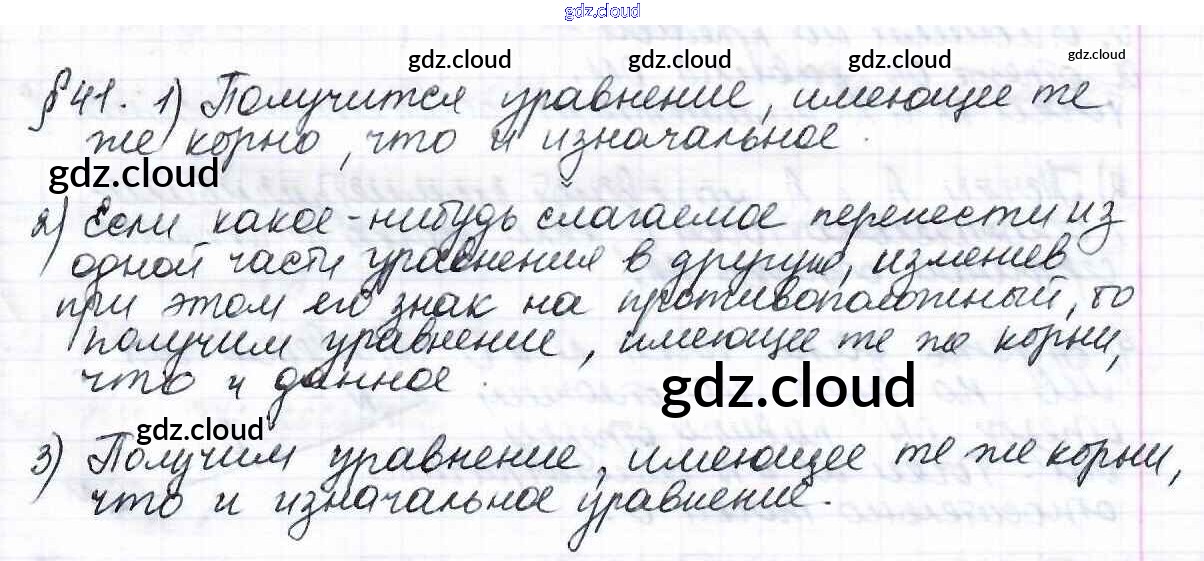 gdz.cloud
gdz.cloud gdz.cloud gdz.cloud gdz.cloud
§ 41. 1) Получится уравнение, имеющее те
же корно, что и изначальное.
gdz.cloud
2) Если какое-нибудь слагаемое перенести из
одной части уравнения в другую, изменив
при этом его знак на противоположный, то
получим уравнение, имеющее те же корни,
что и данное.
gdz.cloud
gdz.cloud
3) Получим уравнение, имеющее те же корни,
что и изначальное уравнение.